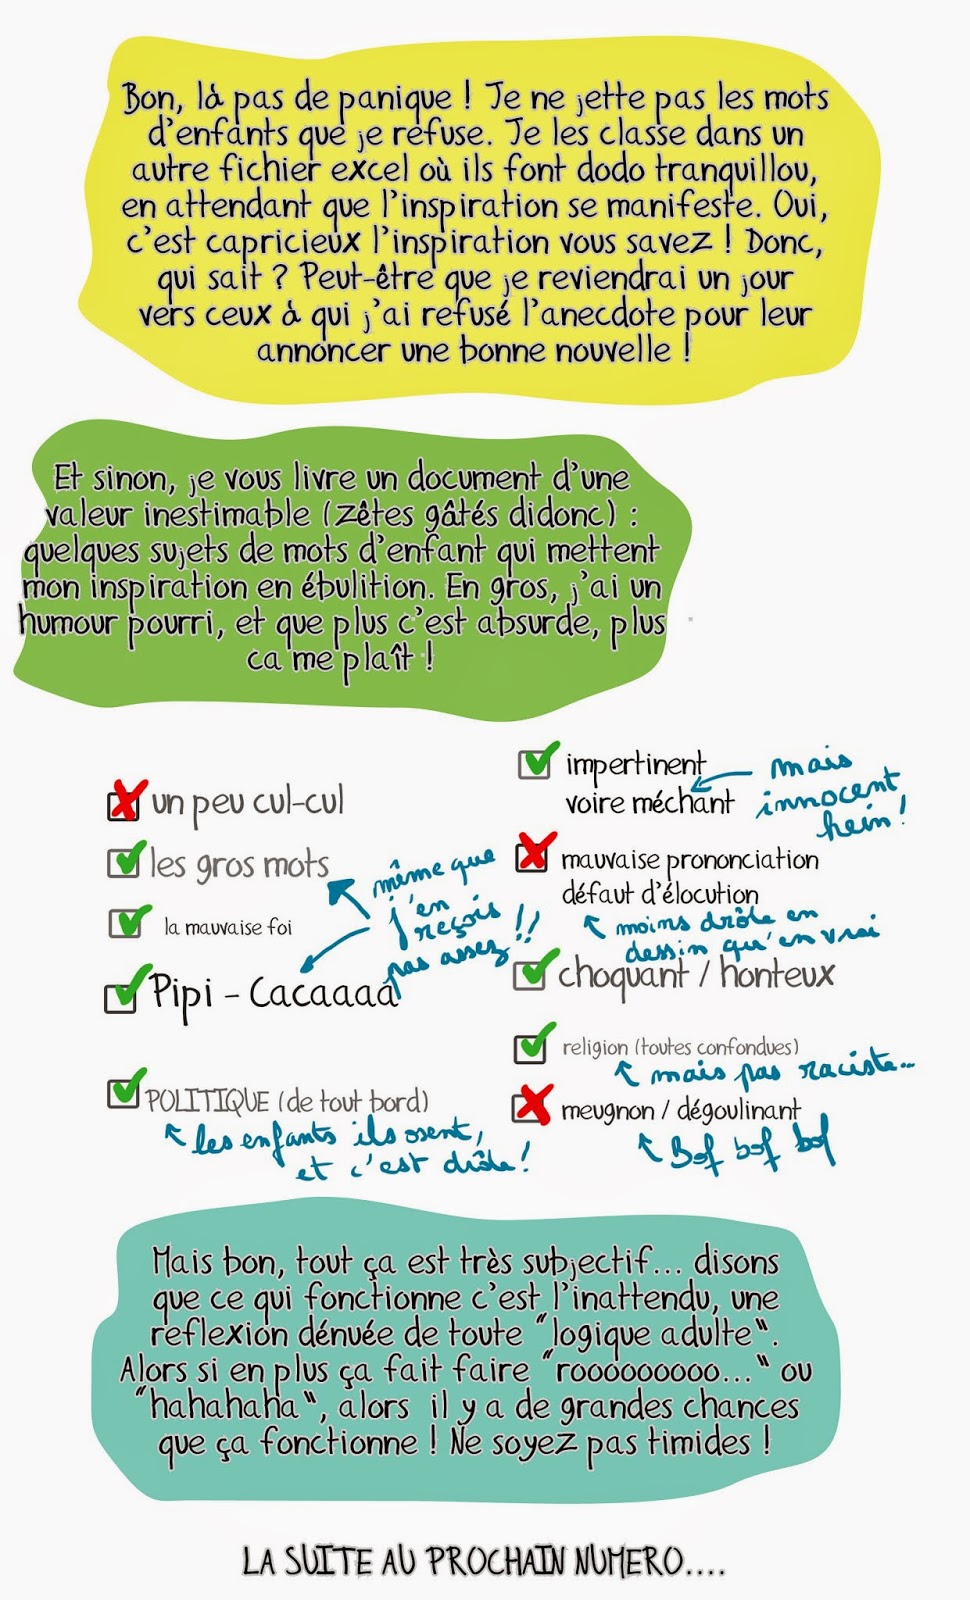 Bon, là pas de panique ! Je ne jette pas les mots
d'enfants que je refuse. Je les classe dans un
autre fichier excel où ils font dodo tranquillou,
en attendant que l'inspiration se manifeste. Oui,
c'est capricieux l'inspiration vous savez ! Donc,
qui sait ? Peut-être que je reviendrai un jour
vers ceux à qui j'ai refusé l'anecdote pour leur
annoncer une bonne nouvelle !
Et sinon, je vous livre un document d'une
valeur inestimable (zêtes gâtés didonc) :
quelques sujets de mots d'enfant qui mettent
mon inspiration en ébulition. En gros, j'ai un
humour pourri, et que plus c'est absurde, plus
ca me plaît !
un peu cul-cul
les gros mots
même que
j'en
reçois
pas assez !!
la mauvaise foi
Pipi - Cacaaaa
POLITIQUE (de tout bord)
les enfants ils osent,
et c'est drôle !
impertinent
voire méchant
mais
innocent
hein !
mauvaise prononciation
défaut d'élocution
moins drôle en
dessin qu'en vrai
choquant / honteux
religion (toutes confondues)
mais pas raciste...
meugnon / dégoulinant
Bof bof bof
Mais bon, tout ça est très subjectif... disons
que ce qui fonctionne c'est l'inattendu, une
reflexion dénuée de toute "logique adulte".
Alors si en plus ça fait faire "rooooooooo..." ou
"hahahaha", alors il y a de grandes chances
que ça fonctionne ! Ne soyez pas timides !
LA SUITE AU PROCHAIN NUMERO....